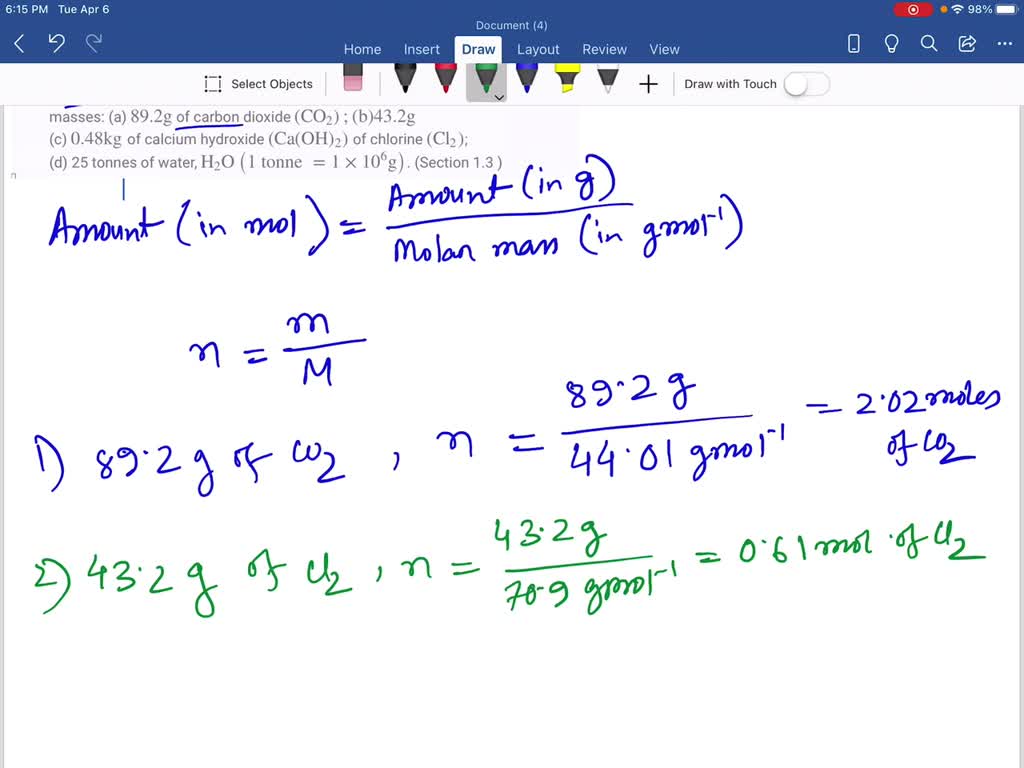 6:15 PM Tue Apr 6
98%
Document (4)
Home Insert Draw Layout Review View
Select Objects
Draw with Touch
masses: (a) 89.2g of carbon dioxide (CO₂) ; (b)43.2g
(c) 0.48kg of calcium hydroxide (Ca(OH)₂) of chlorine (Cl₂);
(d) 25 tonnes of water, H₂O (1 tonne = 1 × 10⁶g). (Section 1.3 )
Amount (in mol) = Amount (in g) / Molar mass (in gmol⁻¹)
n = m / M
1) 89.2 g of CO₂ , n = 89.2 g / 44.01 gmol⁻¹ = 2.02 moles of CO₂
2) 43.2 g of Cl₂ , n = 43.2 g / 70.9 gmol⁻¹ = 0.61 mol of Cl₂